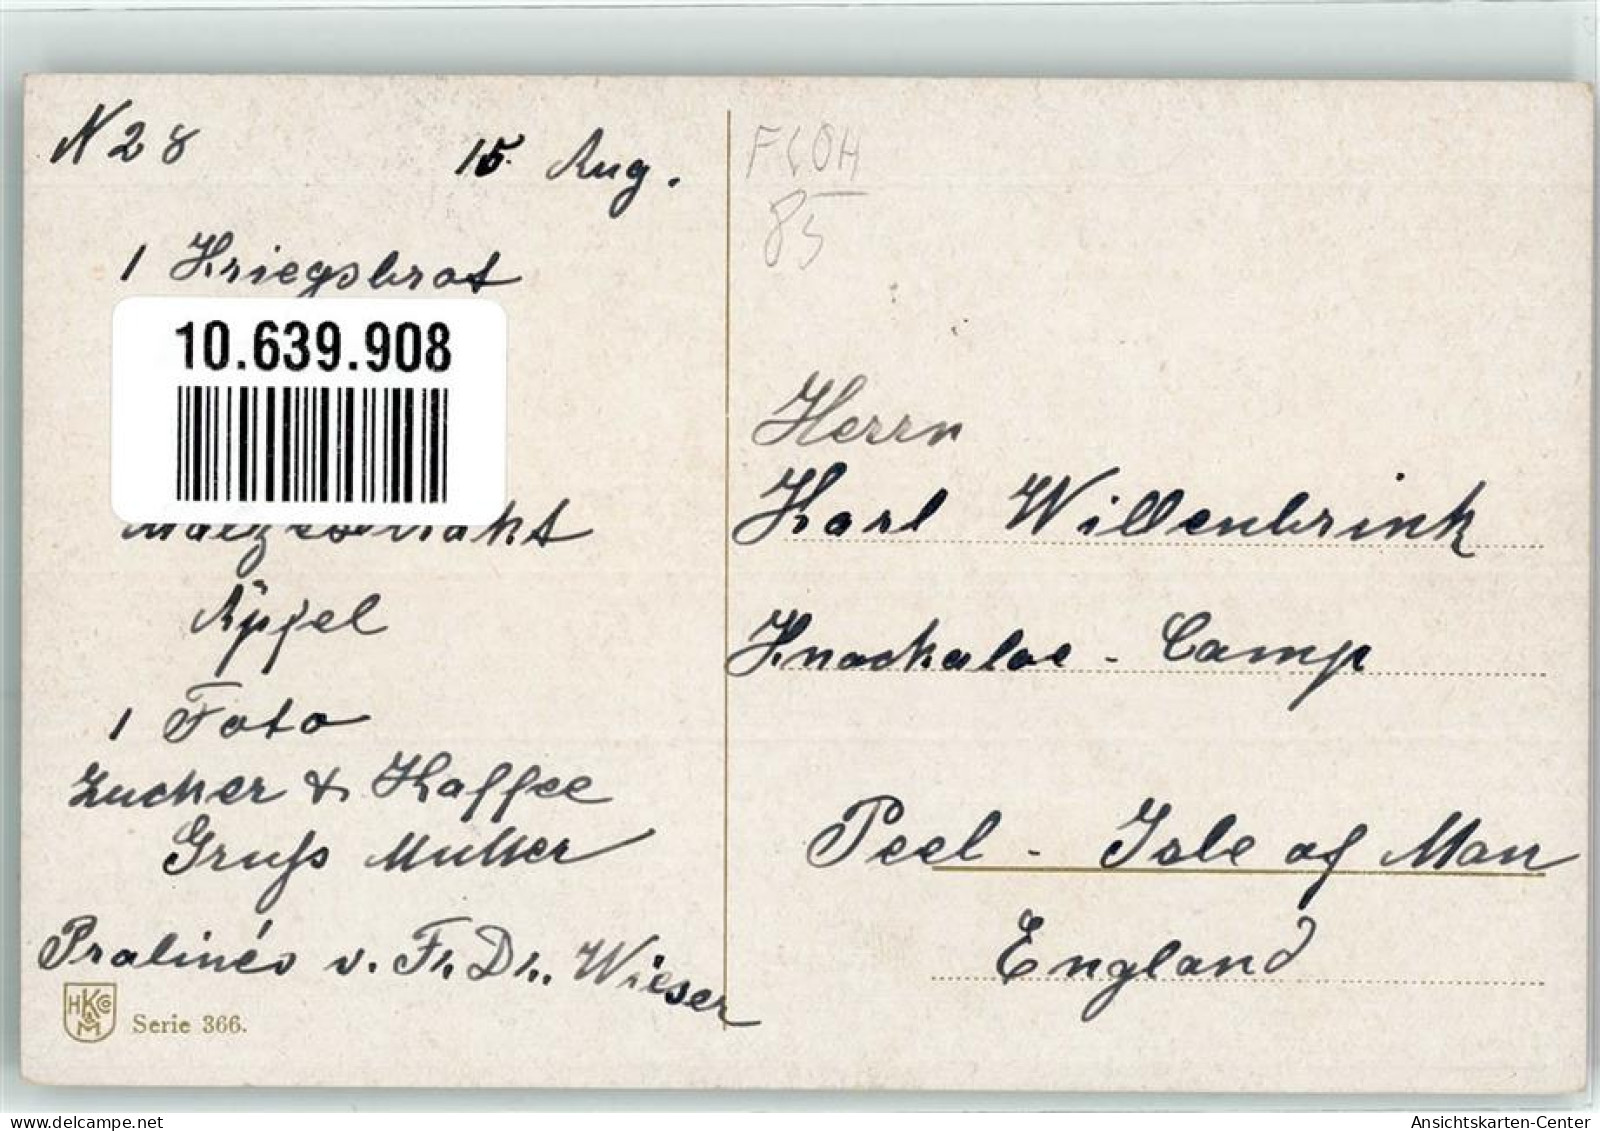 N 28 15. Aug.
1 Kriegsbrot
10.639.908
Malzextrakt
Äpfel
1 Foto
Zucker & Kaffee
Gruß Mutter
Pralinés v. Fr. Dr. Wieser
HKCo M
Serie 366.
85
Herrn
Karl Willenbrink
Knockaloe - Camp
Peel - Isle of Man
England
Ansichtskarten-Center